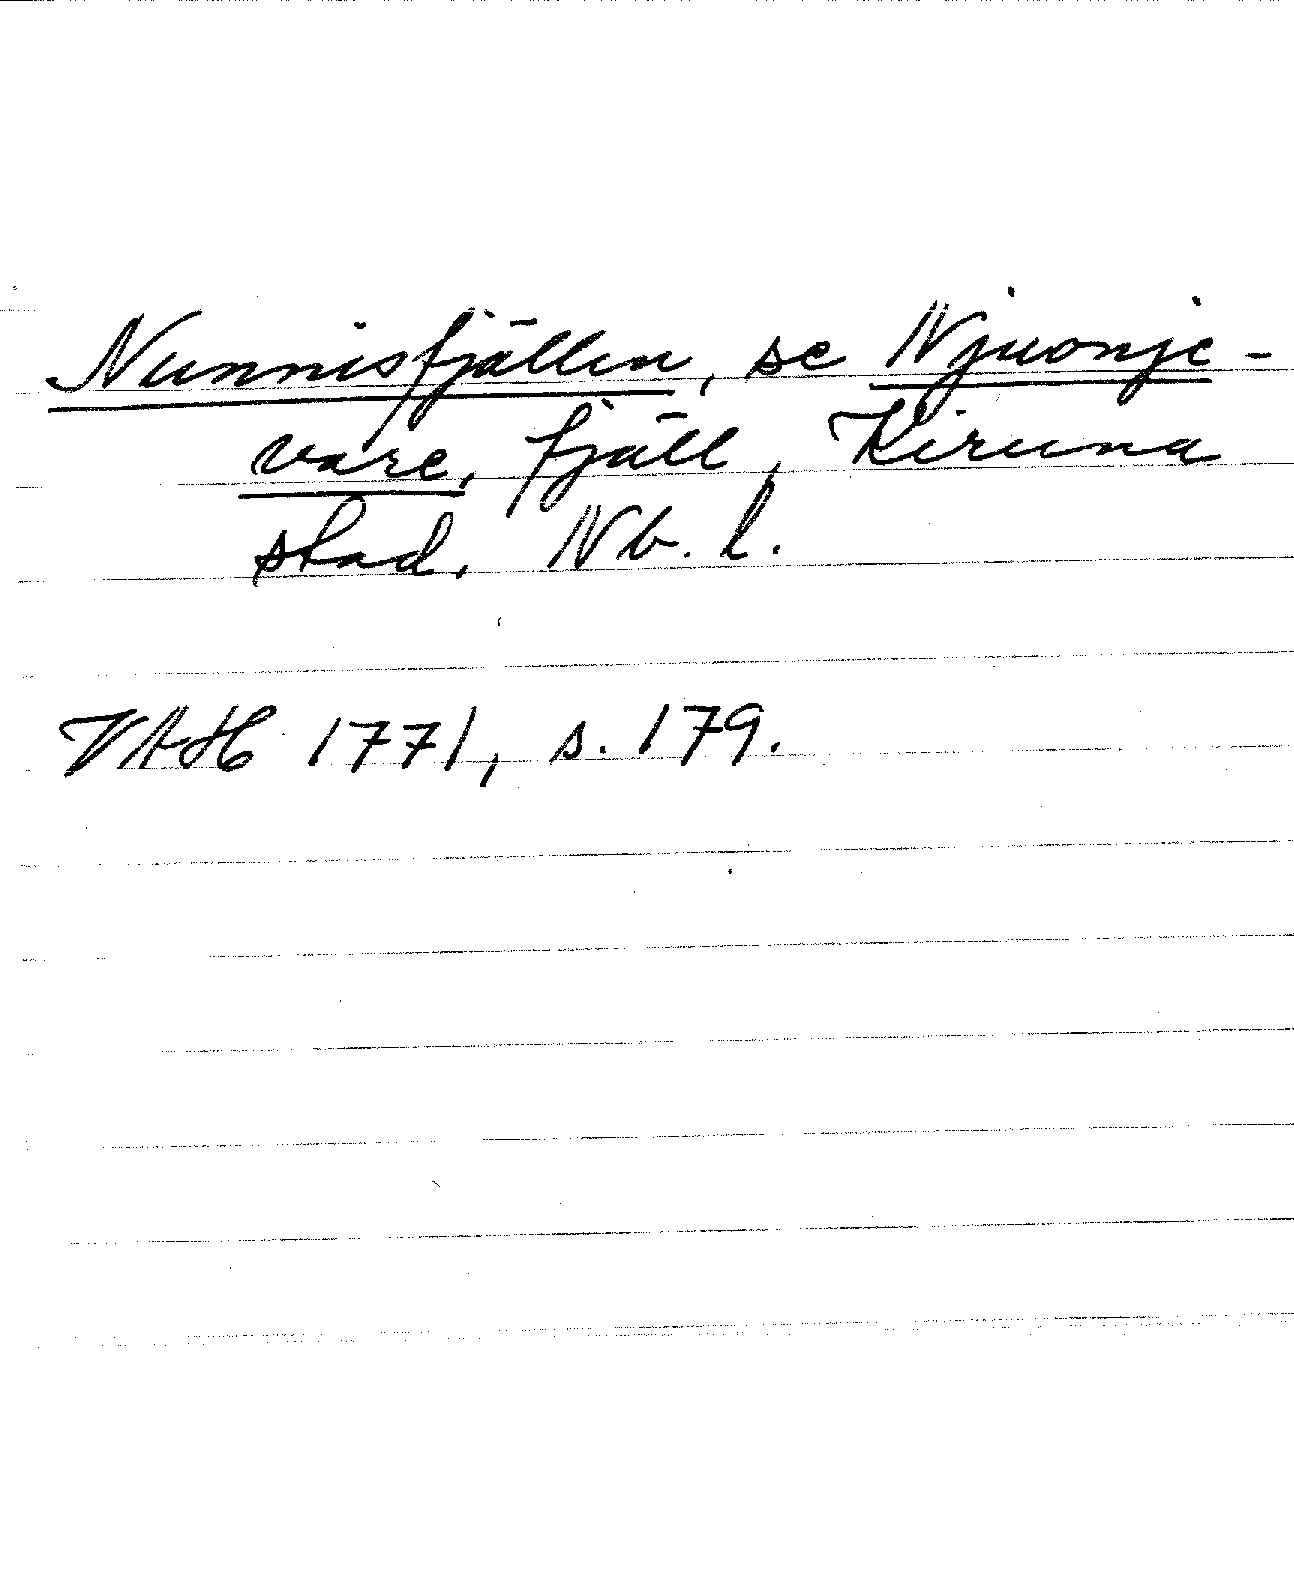 Nunnisfjällen, se Njuonje-
vare, fjäll, Kiruna
stad, Nb. l.
VAH 1771, s. 179.